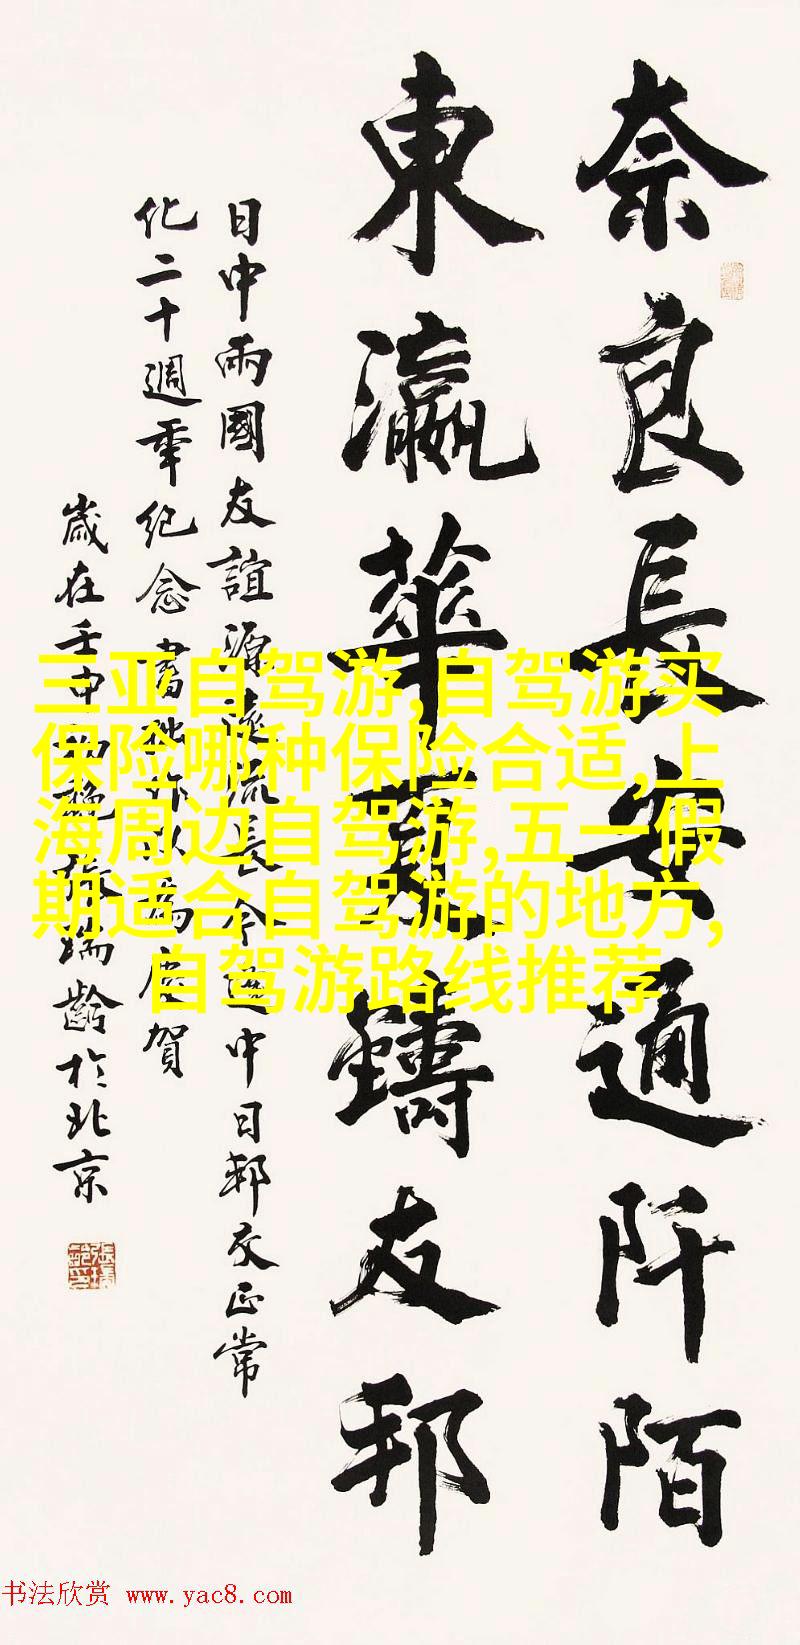 奈良長安通阡陌
東瀛華夏鑄友邦
日中兩國友誼源遠流長今逢中日邦交正常
化二十週年紀念書此作以為慶賀
歲在壬申初秋張瑞齡於北京
三亚自驾游,自驾游买
保险哪种保险合适,上
海周边自驾游,五一假
期适合自驾游的地方,
自驾游路线推荐
书法欣赏 www.yac8.com